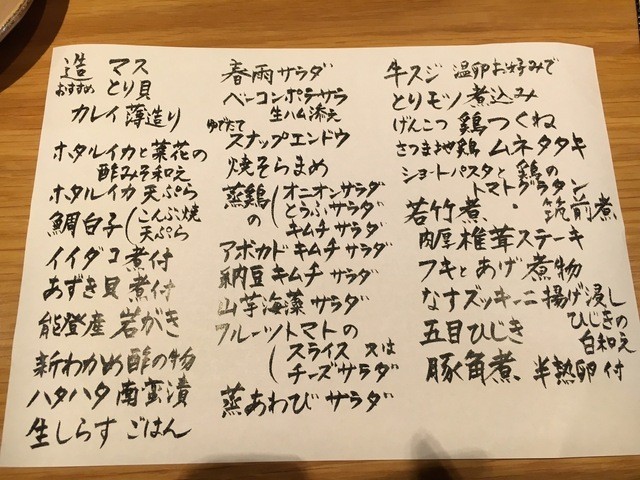 造 マス
おすすめ とり貝
カレイ 薄造り
ホタルイカと菜花の
酢みそ和え
ホタルイカ 天ぷら
鯛白子 こんぶ焼
天ぷら
イイダコ 煮付
あずき貝 煮付
能登産 岩がき
新わかめ 酢の物
ハタハタ 南蛮漬
生しらす ごはん
春雨サラダ
ベーコンポテサラ
生ハム添え
ゆでたて
スナップエンドウ
焼そらまめ
蒸鶏の オニオンサラダ
とうふサラダ
キムチサラダ
アボカドキムチ サラダ
納豆キムチ サラダ
山芋海藻 サラダ
フルーツトマトの
スライス 又は
チーズサラダ
蒸あわび サラダ
牛スジ 温卵お好みで
とりモツ 煮込み
げんこつ 鶏つくね
さつま地鶏 ムネタタキ
ショートパスタと 鶏の
トマトグラタン
若竹煮 ・ 筑前煮
肉厚椎茸ステーキ
フキとあげ 煮物
なすズッキーニ 揚げ浸し
五目ひじき ひじきの
白和え
豚角煮 半熟卵付